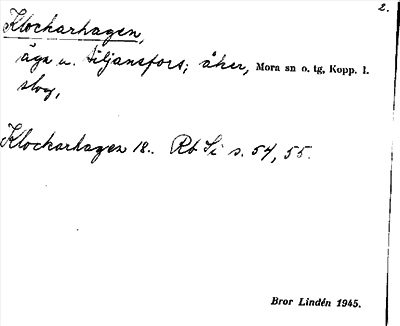 2.
Klockarhagen,
äga u. Siljansfors; åker, Mora sn o. tg, Kopp. l.
skog,
Klockarhagen 18.. Rb Si s. 54, 55.
Bror Lindén 1945.